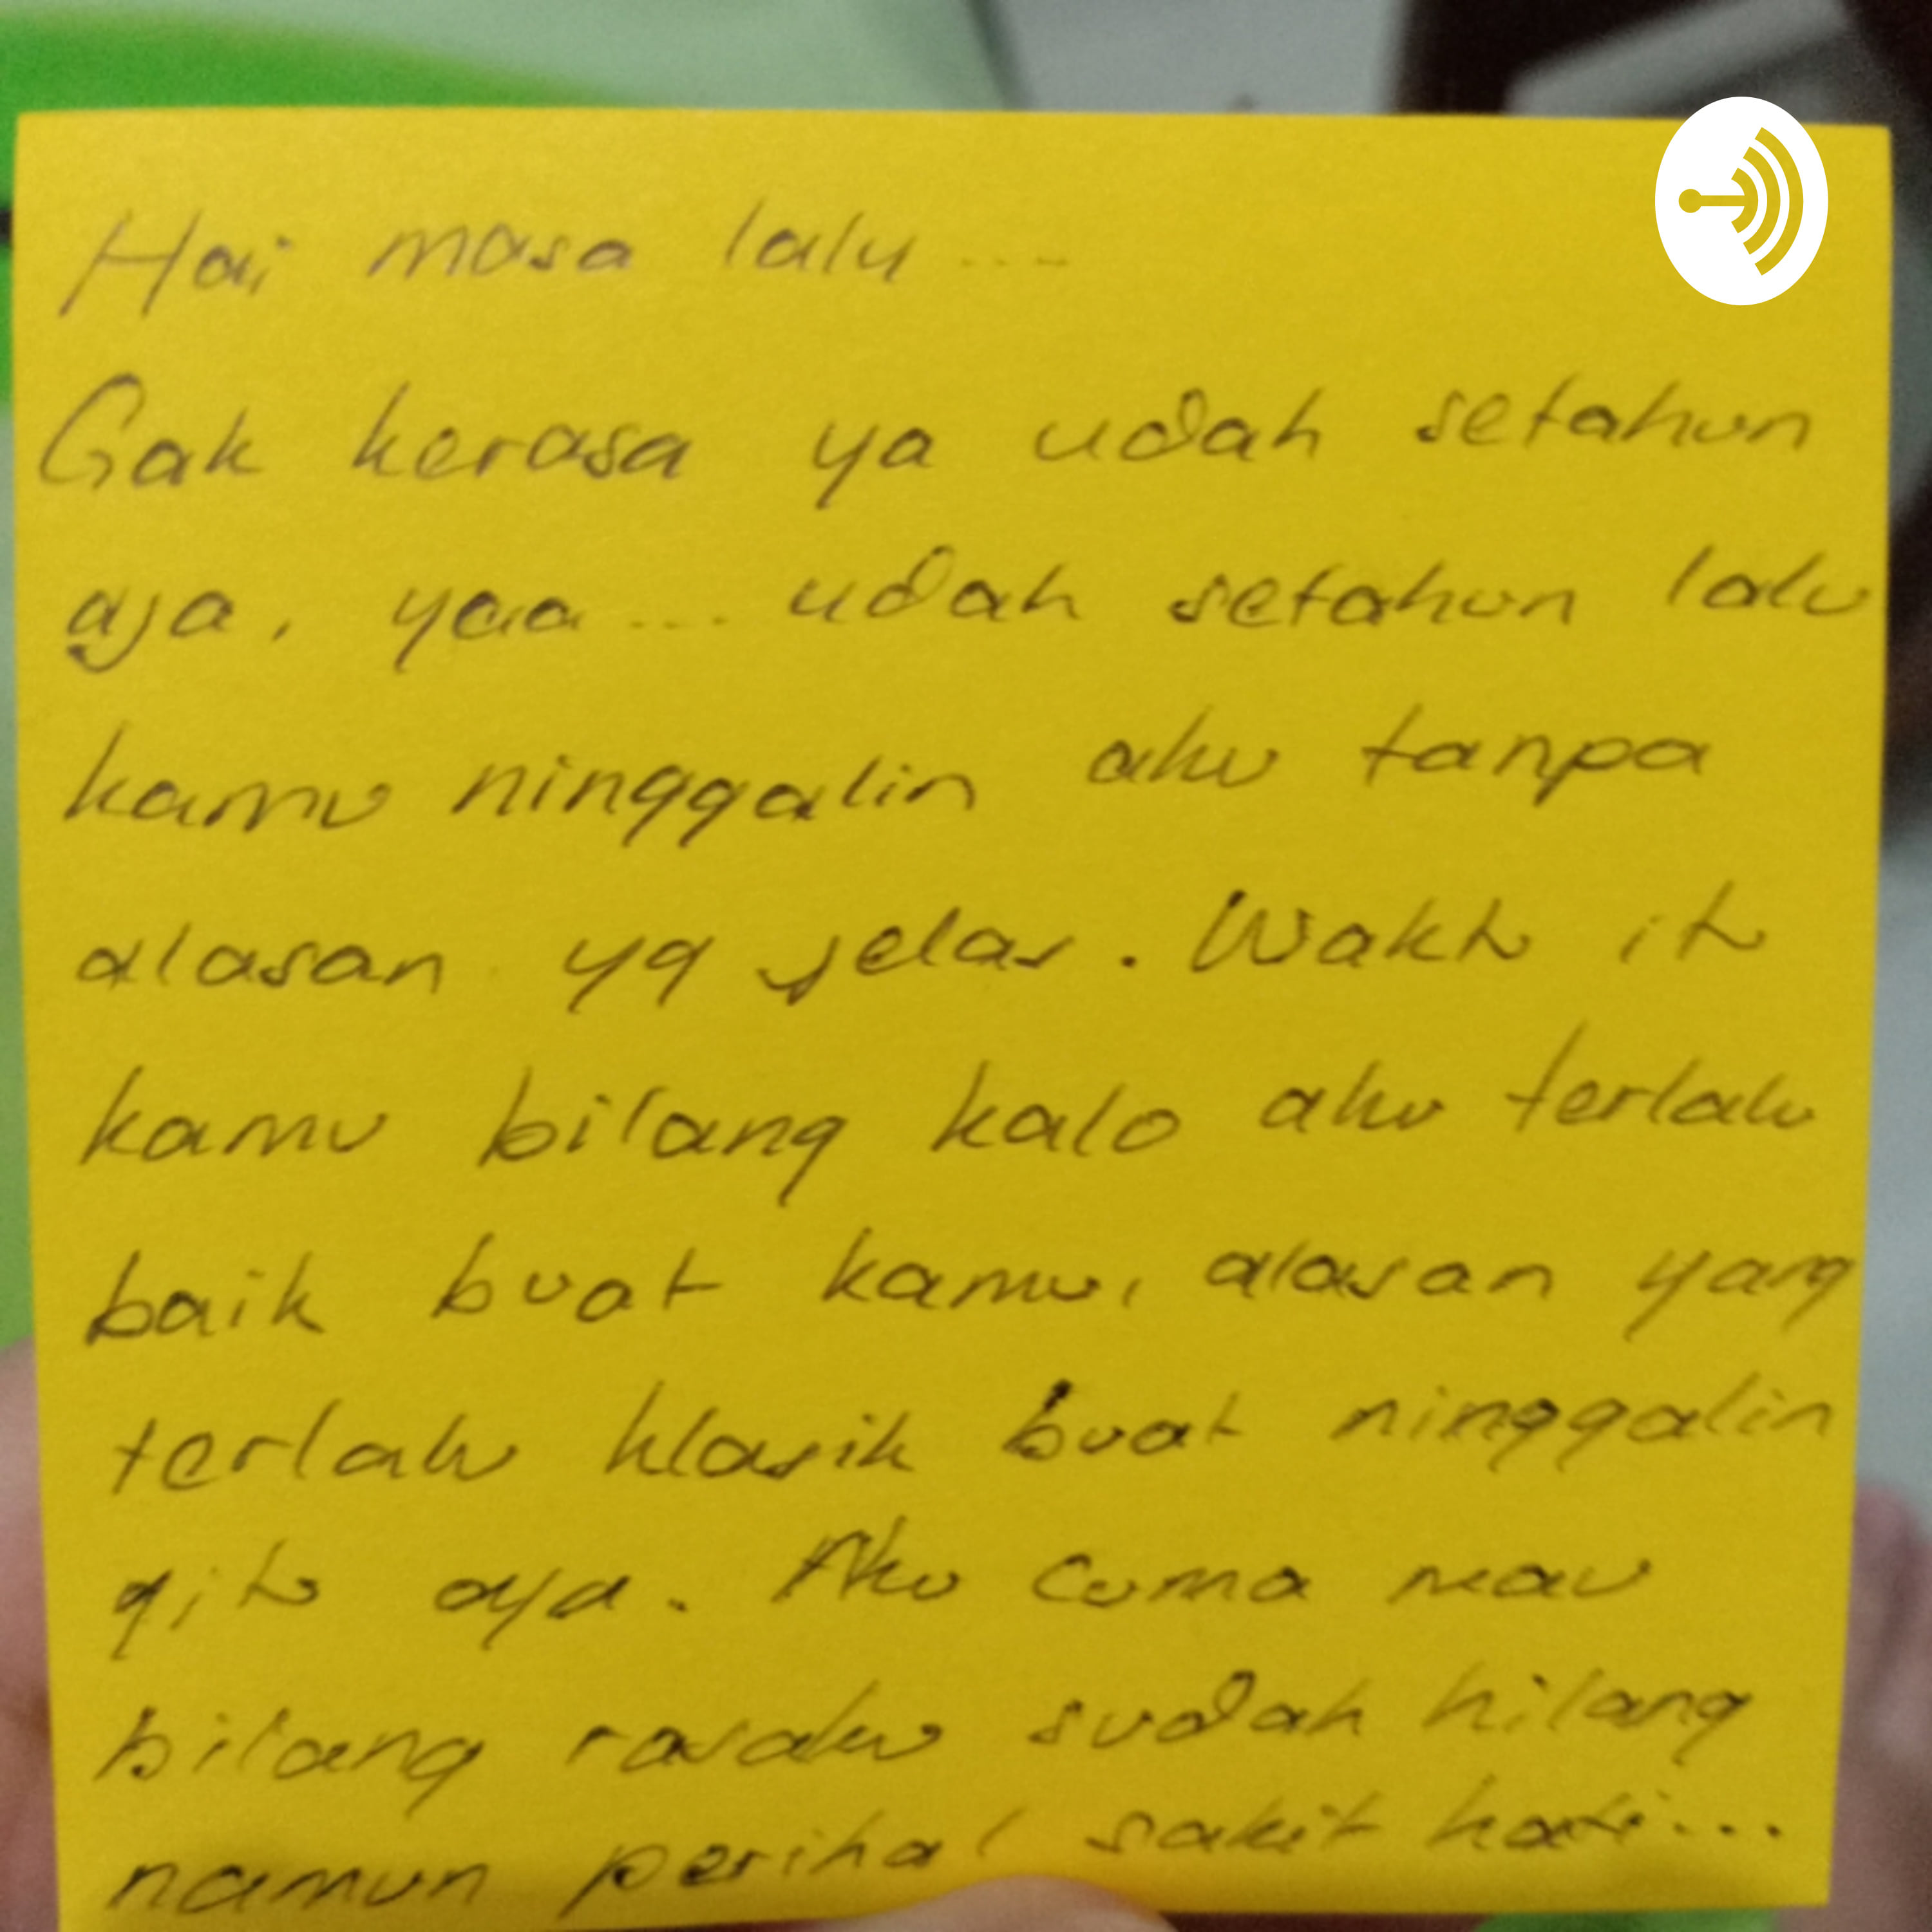 Hai masa lalu ....
Gak kerasa ya udah setahun
aja, yaa .... udah setahun lalu
kamu ninggalin aku tanpa
alasan yg jelas. Waktu itu
kamu bilang kalo aku terlalu
baik buat kamu, alasan yang
terlalu klasik buat ninggalin
gitu aja. Aku cuma mau
bilang rasaku sudah hilang
namun perihal sakit hati...